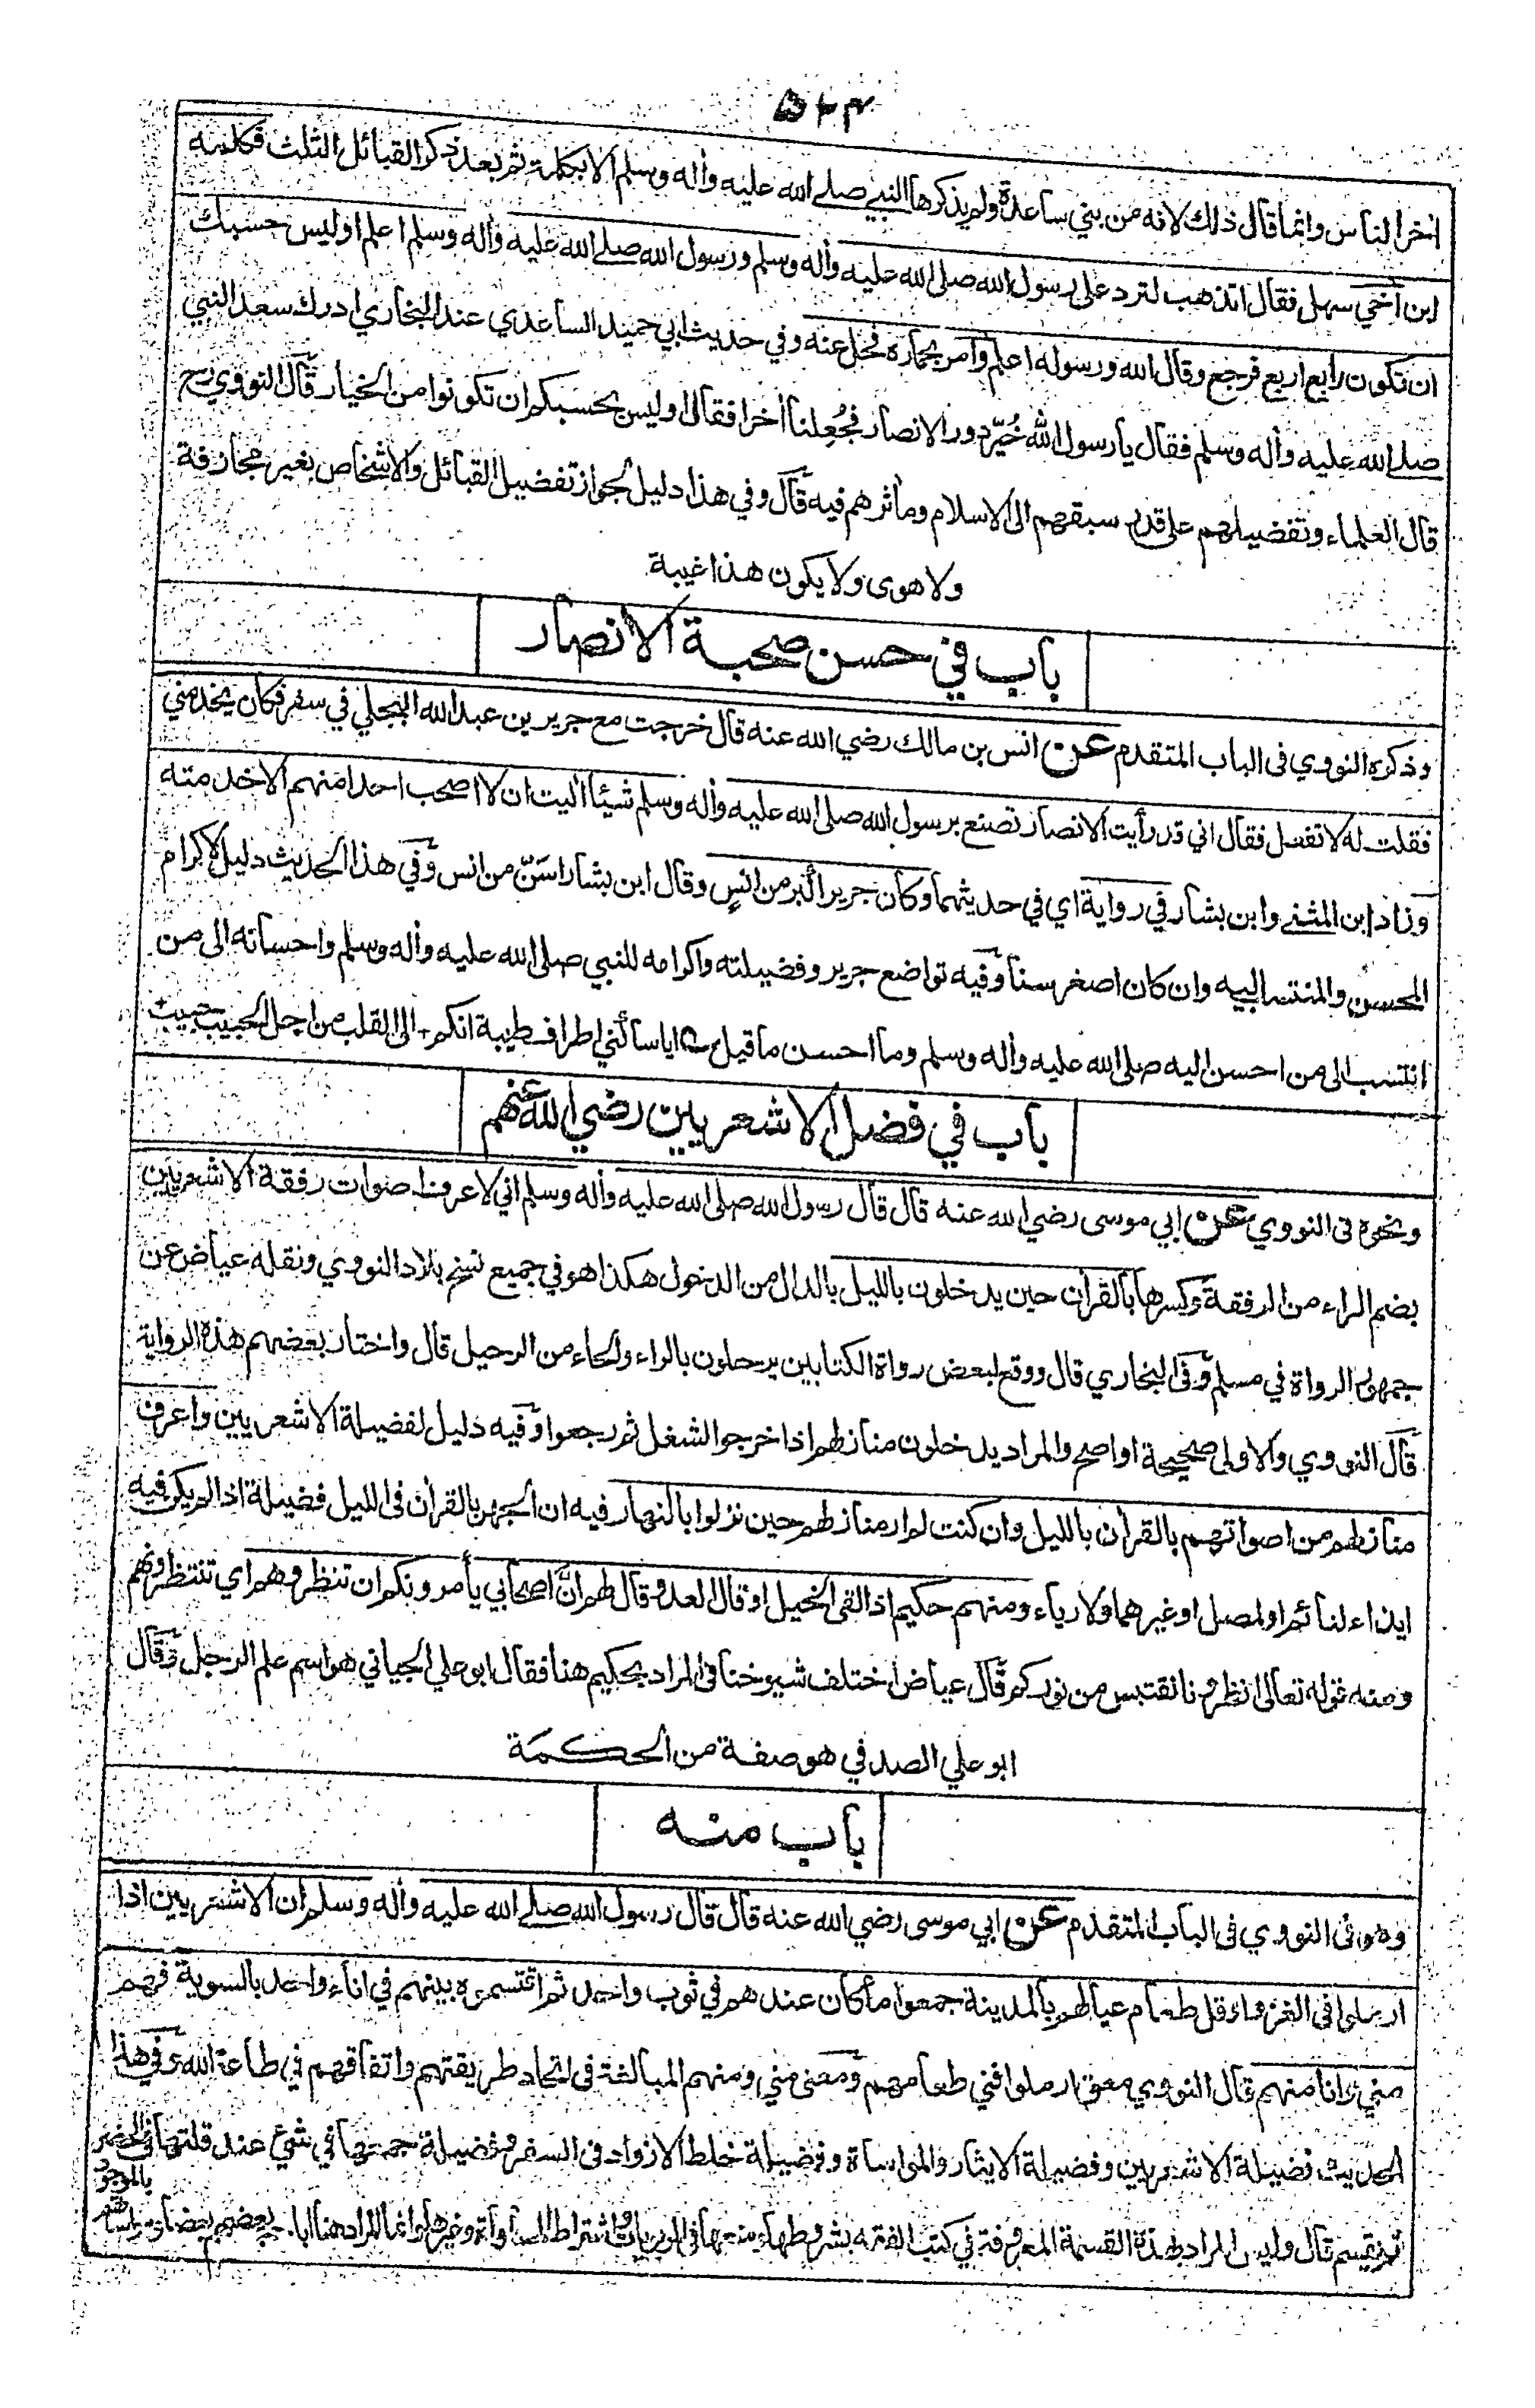 ٥٢٤
اخر الناس وانما قال ذلك لانه من بني ساعدة ولم يذكرها النبي صلى الله عليه واٰله وسلم الا بكلمة ثم بعد ذكر القبائل الثلث فكلمه
ابن اخي سهل فقال اتذهب لترد على رسول الله صلى الله عليه واٰله وسلم ورسول الله صلى الله عليه واٰله وسلم اعلم اوليس حسبك
ان تكون رابع اربع فرجع وقال الله ورسوله اعلم وامر بحماره فحل عنه وفي حديث ابي حميد الساعدي عند البخاري ادرك سعد النبي
صلى الله عليه واٰله وسلم فقال يا رسول الله خُيِّر دور الانصار فجُعِلنا اٰخرا فقال اوليس بحسبكم ان تكونوا من الخيار قال النووي رح
قال العلماء وتفضيلهم على قدر سبقهم الى الاسلام وماٰثرهم فيه قال وفي هذا دليل لجواز تفضيل القبائل والاشخاص بغير مجازفة
ولا هوى ولا يكون هذا غيبة
باب في حسن صحبة الانصار
وذكره النووي فى الباب المتقدم عن انس بن مالك رضي الله عنه قال خرجت مع جرير بن عبد الله البجلي في سفر فكان يخدمني
فقلت له لا تفعل فقال اني قد رأيت الانصار تصنع برسول الله صلى الله عليه واٰله وسلم شيئا اٰليت ان لا اصحب احدا منهم الا خدمته
وزاد ابن المثنى وابن بشار في رواية اي في حديثهما وكان جرير اكبر من انسٍ وقال ابن بشار اسَنّ من انس وفي هذا الحديث دليل لاكرام
المحسن والمنتسب اليه وان كان اصغر سنا وفيه تواضع جرير وفضيلته واكرامه للنبي صلى الله عليه واٰله وسلم واحسانه الى من
انتسب الى من احسن اليه صلى الله عليه واٰله وسلم وما احسن ما قيل ايا سائلي اطراف طيبة انكم + الى القلب من اجل الحبيب حبيب +
باب في فضل الاشعريين رضي الله عنهم
ونحوه فى النووي عن ابي موسى رضي الله عنه قال قال رسول الله صلى الله عليه واٰله وسلم اني لاعرف اصوات رفقة الاشعريين
بضم الراء من الرفقة وكسرها بالقراٰن حين يدخلون بالليل بالدال من الدخول هكذا هو في جميع نسخ بلاد النووي ونقله عياض عن
جمهور الرواة في مسلم وفى البخاري قال ووقع لبعض رواة الكتابين يرحلون بالراء والحاء من الرحيل قال واختار بعضهم هذه الرواية
قال النووي والاولى صحيحة او اصح والمراد يدخلون منازلهم اذا خرجوا لشغل ثم رجعوا وفيه دليل لفضيلة الاشعريين واعرف
منازلهم من اصواتهم بالقراٰن بالليل وان كنت لم ار منازلهم حين نزلوا بالنهار فيه ان الجهر بالقراٰن فى الليل فضيلة اذا لم يكن فيه
ايذاء لنائم او لمصل او غيرهما ولا رياء ومنهم حكيم اذا لقى الخيل او قال العدو قال لهم انّ اصحابي يأمرونكم ان تنظروهم اي تنتظرونهم
ومنه قوله تعالى انظرونا نقتبس من نوركم قال عياض اختلف شيوخنا فى المراد بحكيم هنا فقال ابو علي الجياني هو اسم علم لرجل وقال
ابو علي الصدفي هو صفة من الحكمة
باب منه
وهو فى النووي فى الباب المتقدم عن ابي موسى رضي الله عنه قال قال رسول الله صلى الله عليه واٰله وسلم ان الاشعريين اذا
ارملوا فى الغزو او قل طعام عيالهم بالمدينة جمعوا ما كان عندهم في ثوب واحد ثم اقتسموه بينهم في اناء واحد بالسوية فهم
مني وانا منهم قال النووي معنى ارملوا فني طعامهم ومعنى مني ومنهم المبالغة فى اتحاد طريقتهم واتفاقهم في طاعة الله وفي هذا
الحديث فضيلة الاشعريين وفضيلة الايثار والمواساة وفضيلة خلط الازواد فى السفر وفضيلة جمعها في شئ عند قلتها فى الحضر
ثم تقسم قال وليس المراد بهذا القسمة المعروفة في كتب الفقه بشروطها ومنعها فى الربويات واشتراط المساواة وغيرها وانما المراد هنا اباحة بعضهم بعضا ومواساتهم
بالموجود